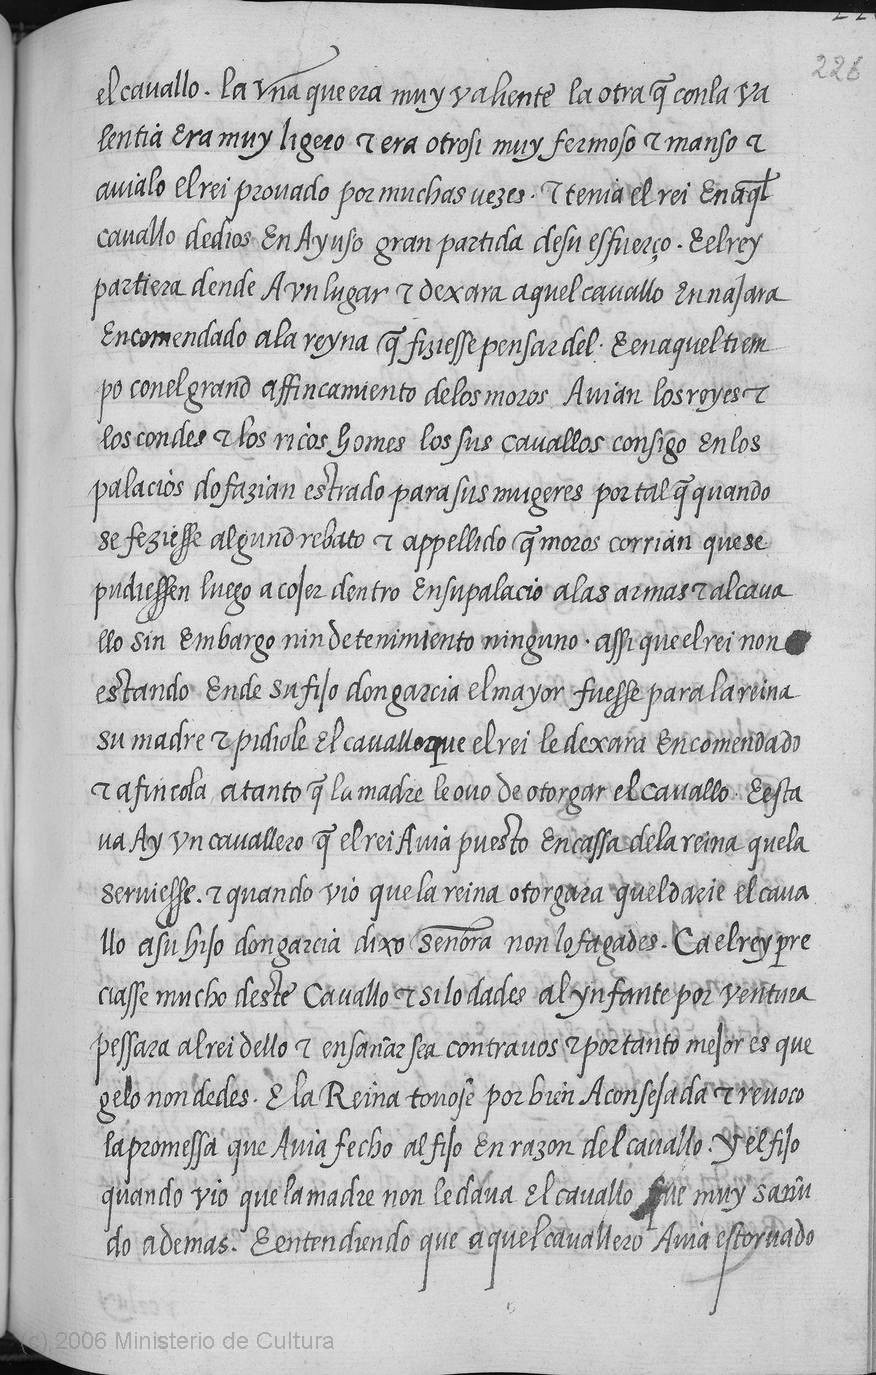 226
el cauallo. la vña que era muy valiente la otra q̃ con la va
lentia Era muy ligero τ era otrosi muy fermoso τ manso τ
auialo el rei prouado por muchas vezes. τ tenia el rei En aq̃l
cauallo de dios En Ayuso gran partida de su esfuerço. E el rey
partiera dende A vn lugar τ dexara aquel cauallo En najara
Encomendado a la reyna q̃ fiziesse pensar del. E en aquel tiem
po con el grand affincamiento de los moros Auian los reyes τ
los condes τ los ricos homes los sus cauallos consigo En los
palacios do fazian estrado para sus mugeres por tal q̃ quando
se feziesse algund rebato τ appellido q̃ moros corrian que se
pudiessen luego acojer dentro En su palacio a las armas τ al caua
llo sin Embargo nin detenimiento ninguno. assi que el rei non
estando Ende su fijo don garcia el mayor fuesse para la reina
su madre τ pidiole El cauallo que el rei le dexara Encomendado
τ afincola a tanto q̃ la madre le ouo De otorgar el cauallo. E esta
ua Ay vn cauallero q̃ el rei Auia puesto En cassa de la reina que la
seruiesse. τ quando vio que la reina otorgara quel darie el caua
llo a su hijo don garcia dixo señora non lo fagades. Ca el rey pre
ciasse mucho deste Cauallo τ si lo dades al ynfante por ventura
pessara al rei dello τ ensañar sea contra uos τ por tanto mejor es que
gelo non dedes. E la Reina touose por bien Aconsejada τ reuoco
la promessa que Auia fecho al fijo En razon del cauallo. Y el fijo
quando vio que la madre non le daua El cauallo fue muy sañu
do ademas. E entendiendo que aquel cauallero Auia estoruado
(c) 2006 Ministerio de Cultura